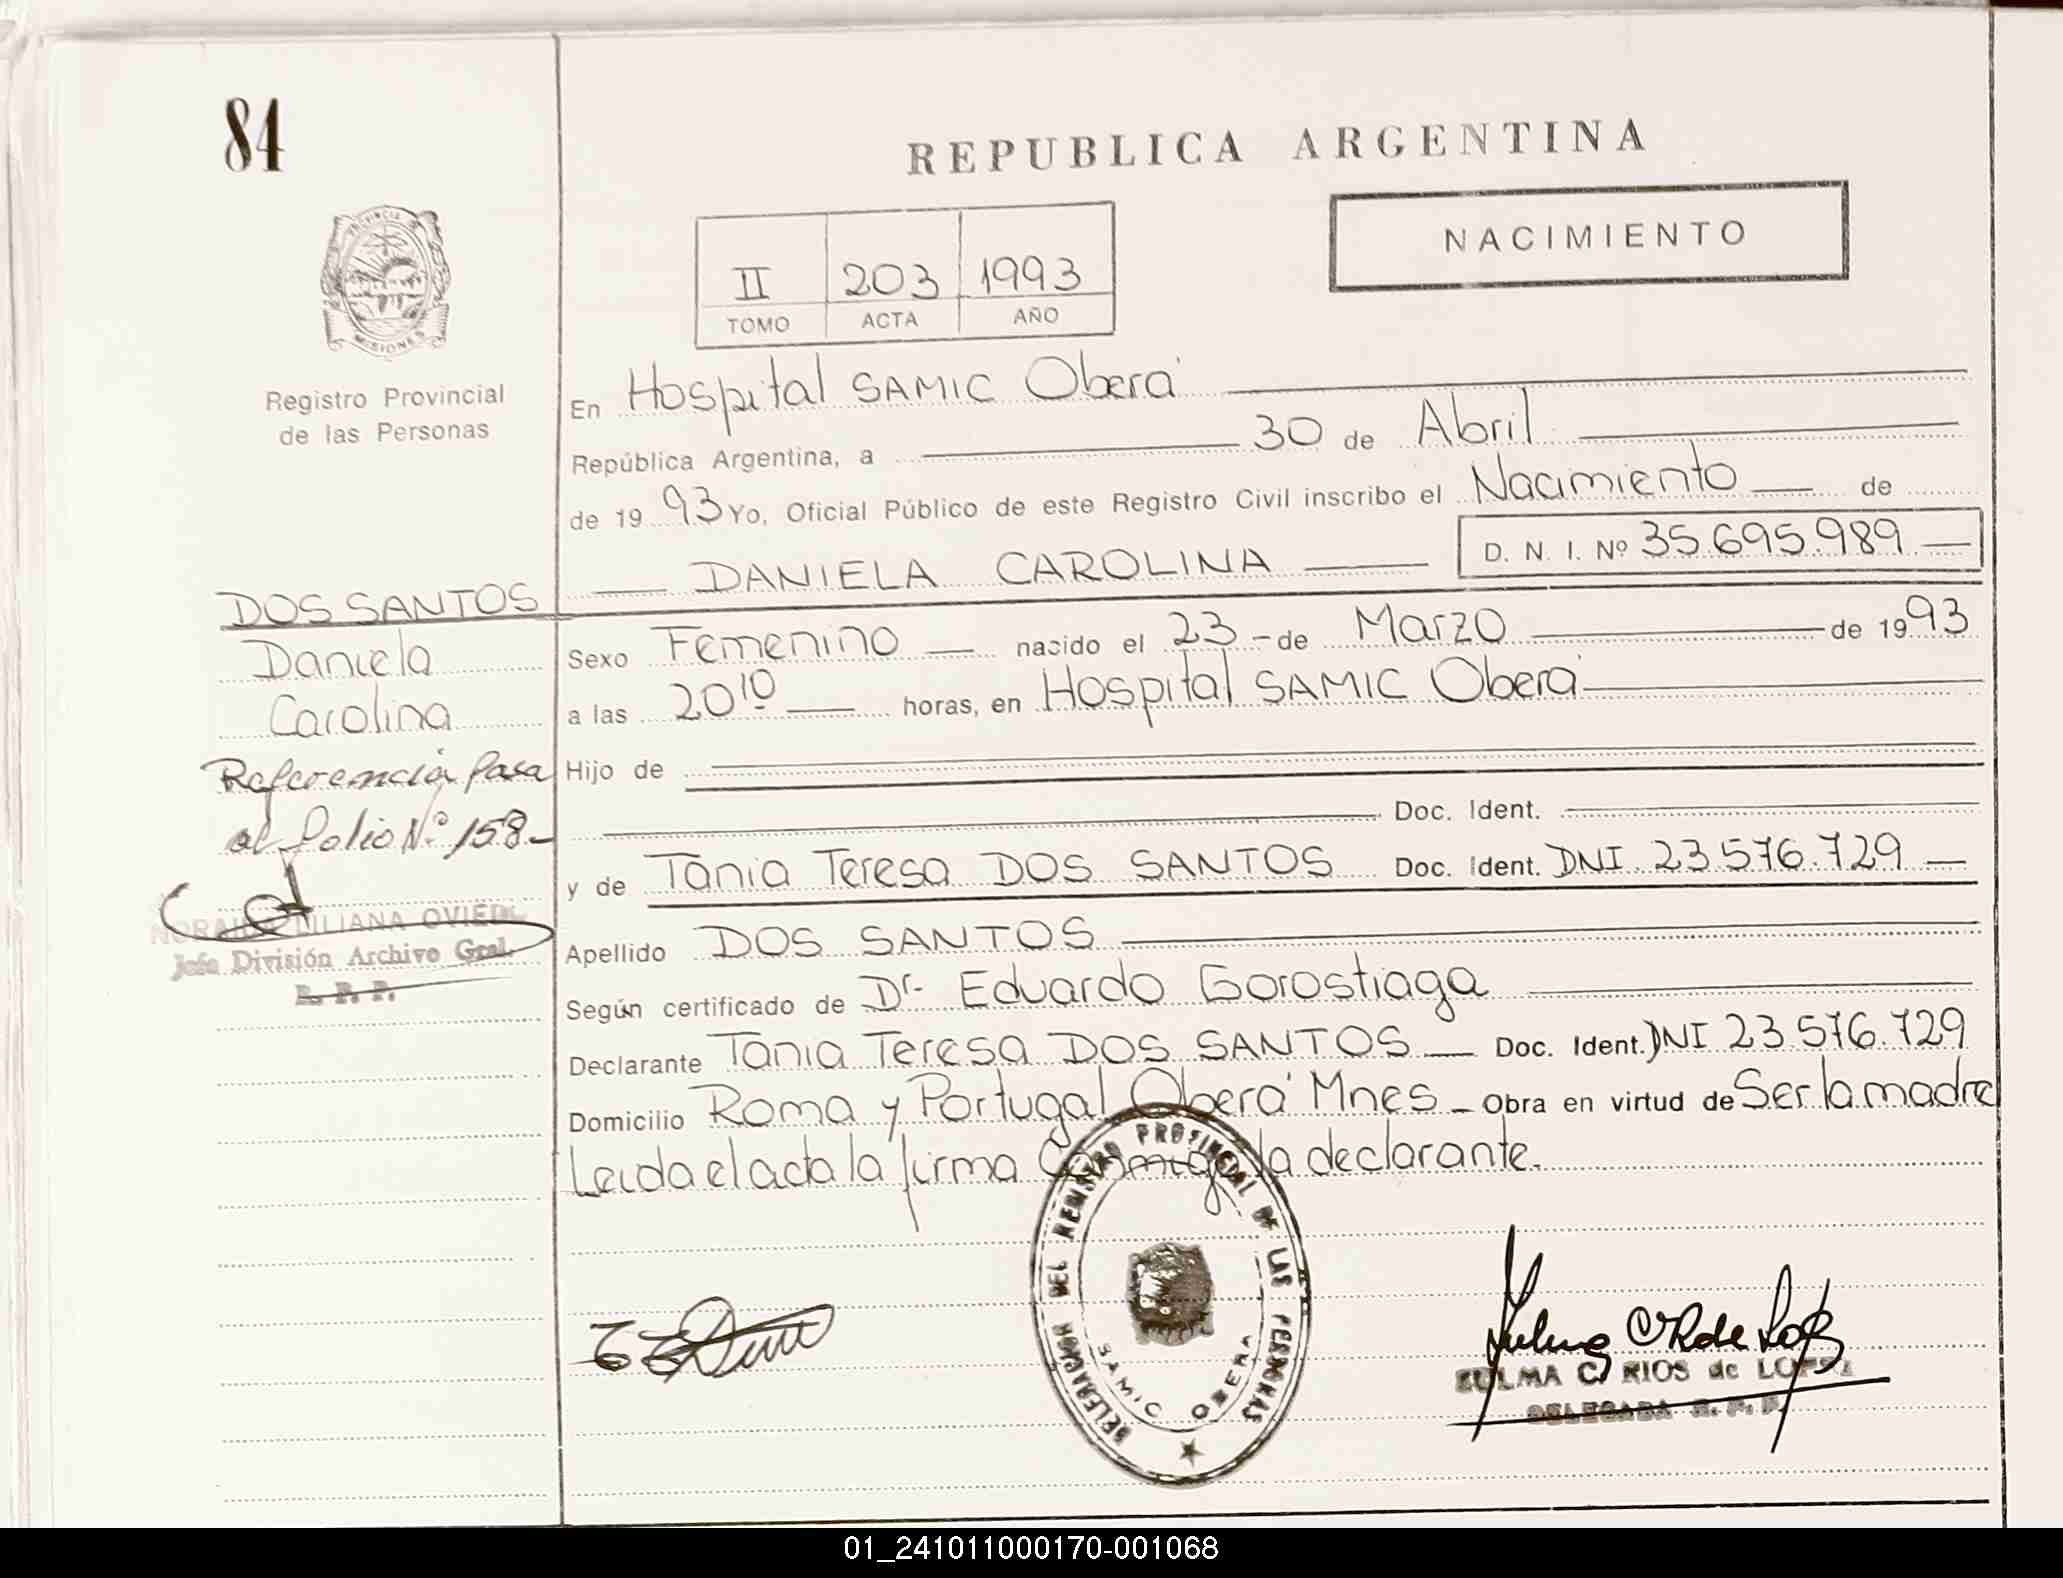 84
REPUBLICA ARGENTINA
NACIMIENTO
II 203 1993
TOMO ACTA AÑO
PROVINCIA DE MISIONES
Registro Provincial
de las Personas
En Hospital SAMIC Oberá
República Argentina, a 30 de Abril
de 1993 Yo, Oficial Público de este Registro Civil inscribo el Nacimiento de
DANIELA CAROLINA D. N. I. Nº 35.695.989
DOS SANTOS
Daniela
Carolina
Referencia Pasa
al folio Nº 158.-
NORAIDA LILIANA OVIEDO
Jefa División Archivo Gral.
R. P. P.
Sexo Femenino nacido el 23 - de Marzo de 1993
a las 20 10 horas, en Hospital SAMIC Oberá
Hijo de
Doc. Ident.
y de Tania Teresa DOS SANTOS Doc. Ident. DNI 23.576.729
Apellido DOS SANTOS
Según certificado de Dr. Eduardo Gorostiaga
Declarante Tania Teresa DOS SANTOS Doc. Ident. DNI 23.576.729
Domicilio Roma y Portugal Oberá Mnes - Obra en virtud de Ser la madre
Leida el acta la firma Conmigo la declarante.
DELEGACION DEL REGISTRO PROVINCIAL DE LAS PERSONAS
SAMIC OBERA
ZULMA C. RIOS de LOPEZ
DELEGADA R. P. P.
01_241011000170-001068